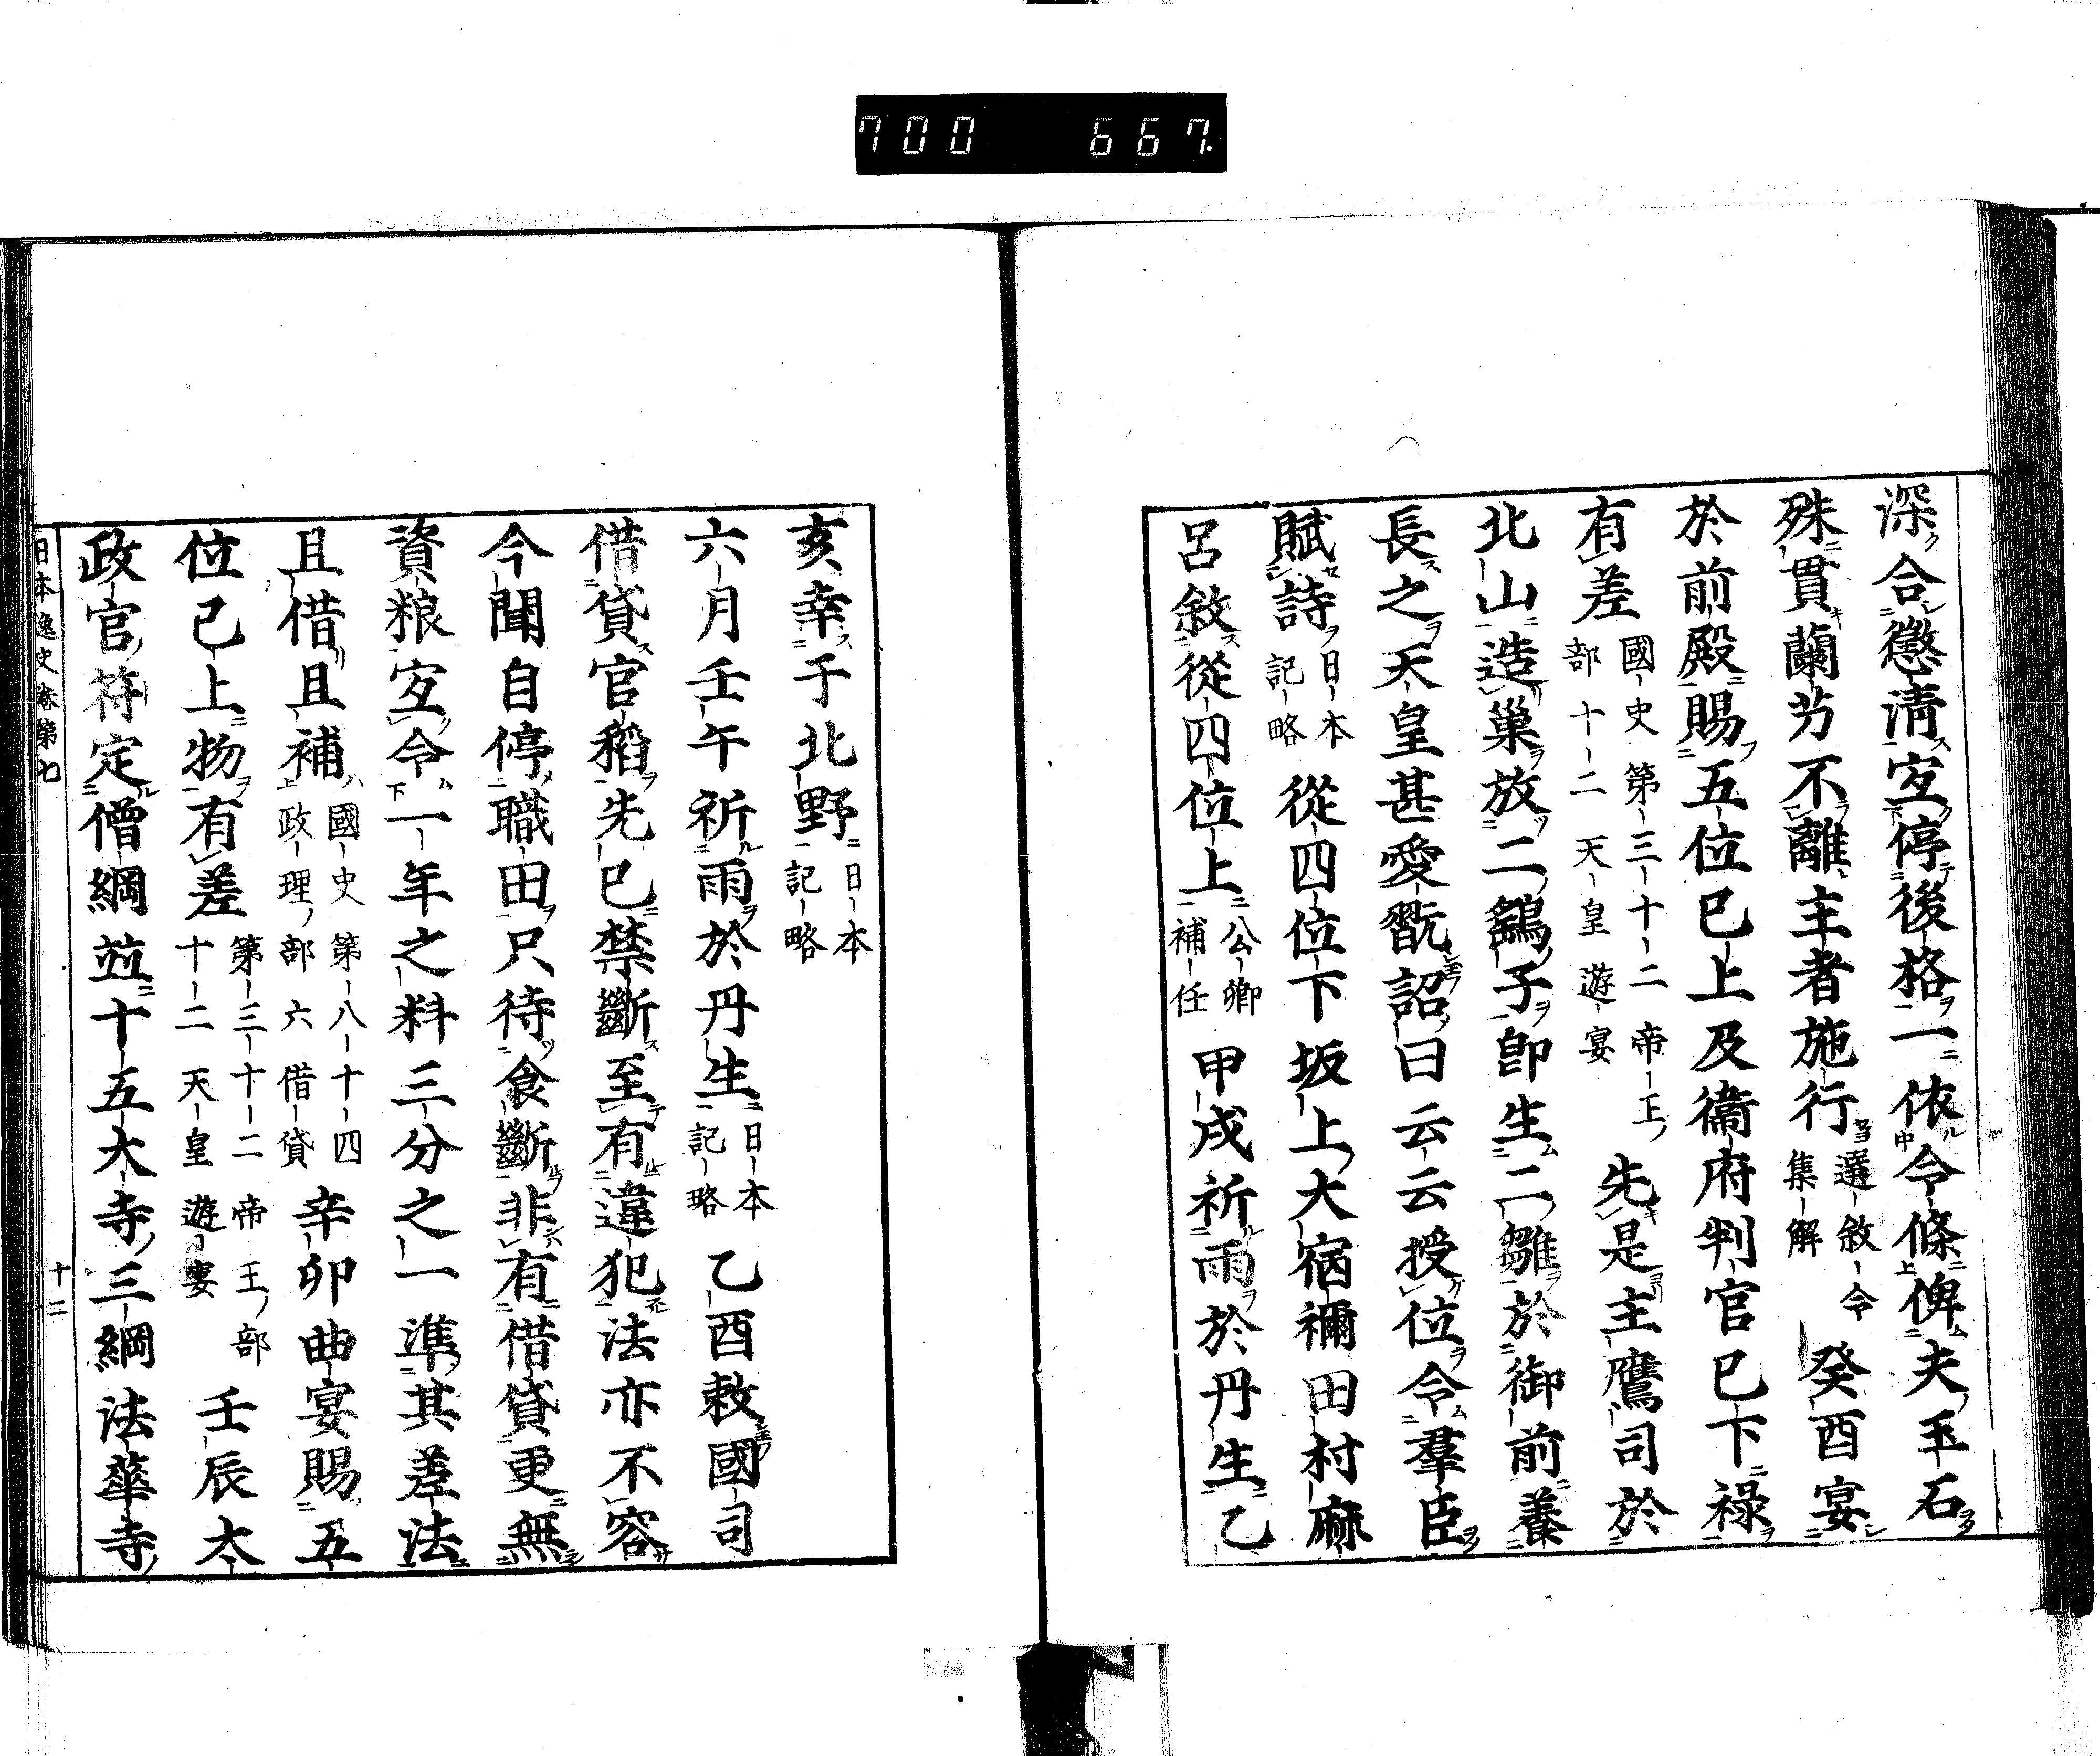 700 667.
深合懲淸宐停後格一依令條俾夫玉石
殊貫蘭艻不離主者施行選敘令集解癸酉宴
於前殿賜五位已上及衞府判官已下祿
有差國史第三十二帝王部十二天皇遊宴先是主鷹司於
北山造巢放二鷂子卽生二雛於御前養
長之天皇甚愛翫詔曰云云授位令羣臣
賦詩日本記略從四位下坂上大宿禰田村麻
呂敘從四位上公卿補任甲戌祈雨於丹生乙
亥幸于北野日本記略
六月壬午祈雨於丹生日本記略乙酉敕國司
借貸官稻先已禁斷至有違犯法亦不容
今聞自停職田只待食斷非有借貸更無
資粮宐令一年之料三分之一準其差法
且借且補國史第八十四政理部六借貸辛卯曲宴賜五
位已上物有差第三十二帝王部十二天皇遊宴壬辰太
政官符定僧綱竝十五大寺三綱法華寺
日本逸史卷第七 十二